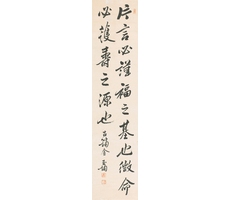 片言必謹福之基也微命
必護壽之源也